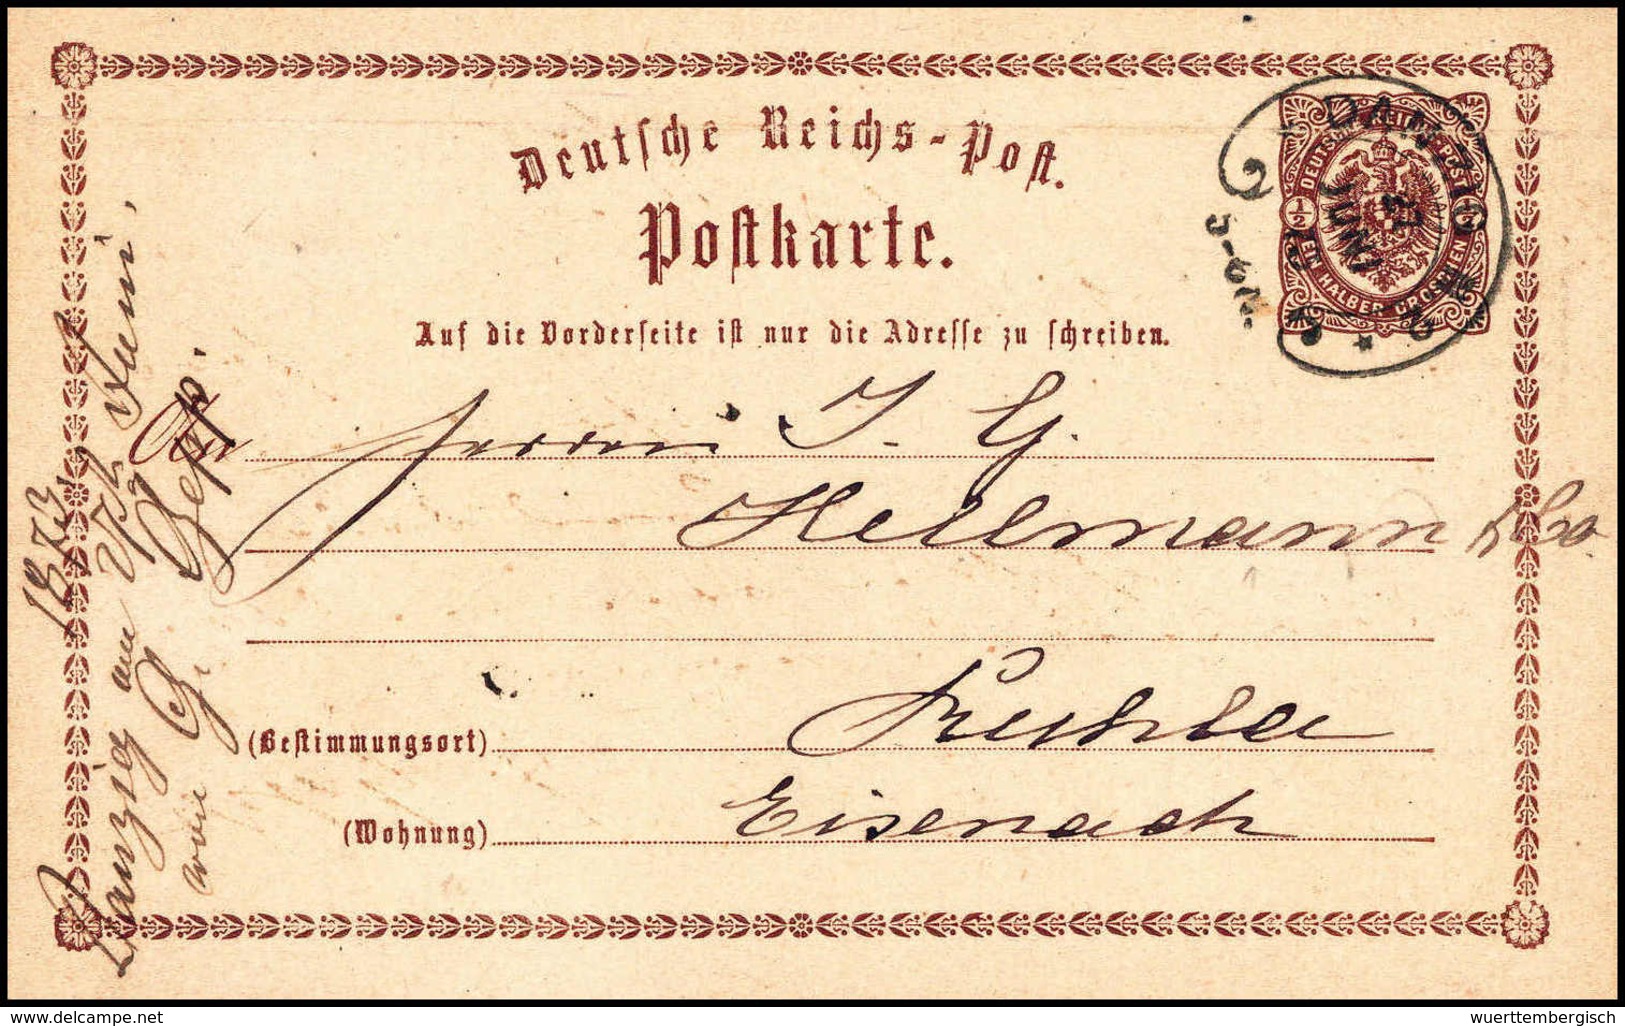 Deutsche Reichs-Post.
Postkarte.
Auf die Vorderseite ist nur die Adresse zu schreiben.
DEUTSCHE REICHS-POST
½ ½
EIN HALBER GROSCHEN
DANZIG
JUNI
An Herren J. G.
Hellmann & Co.
(Bestimmungsort) Ruhla
(Wohnung) Eisenach
Danzig am Juni,
1873.
delcampe.net
wuerttembergisch